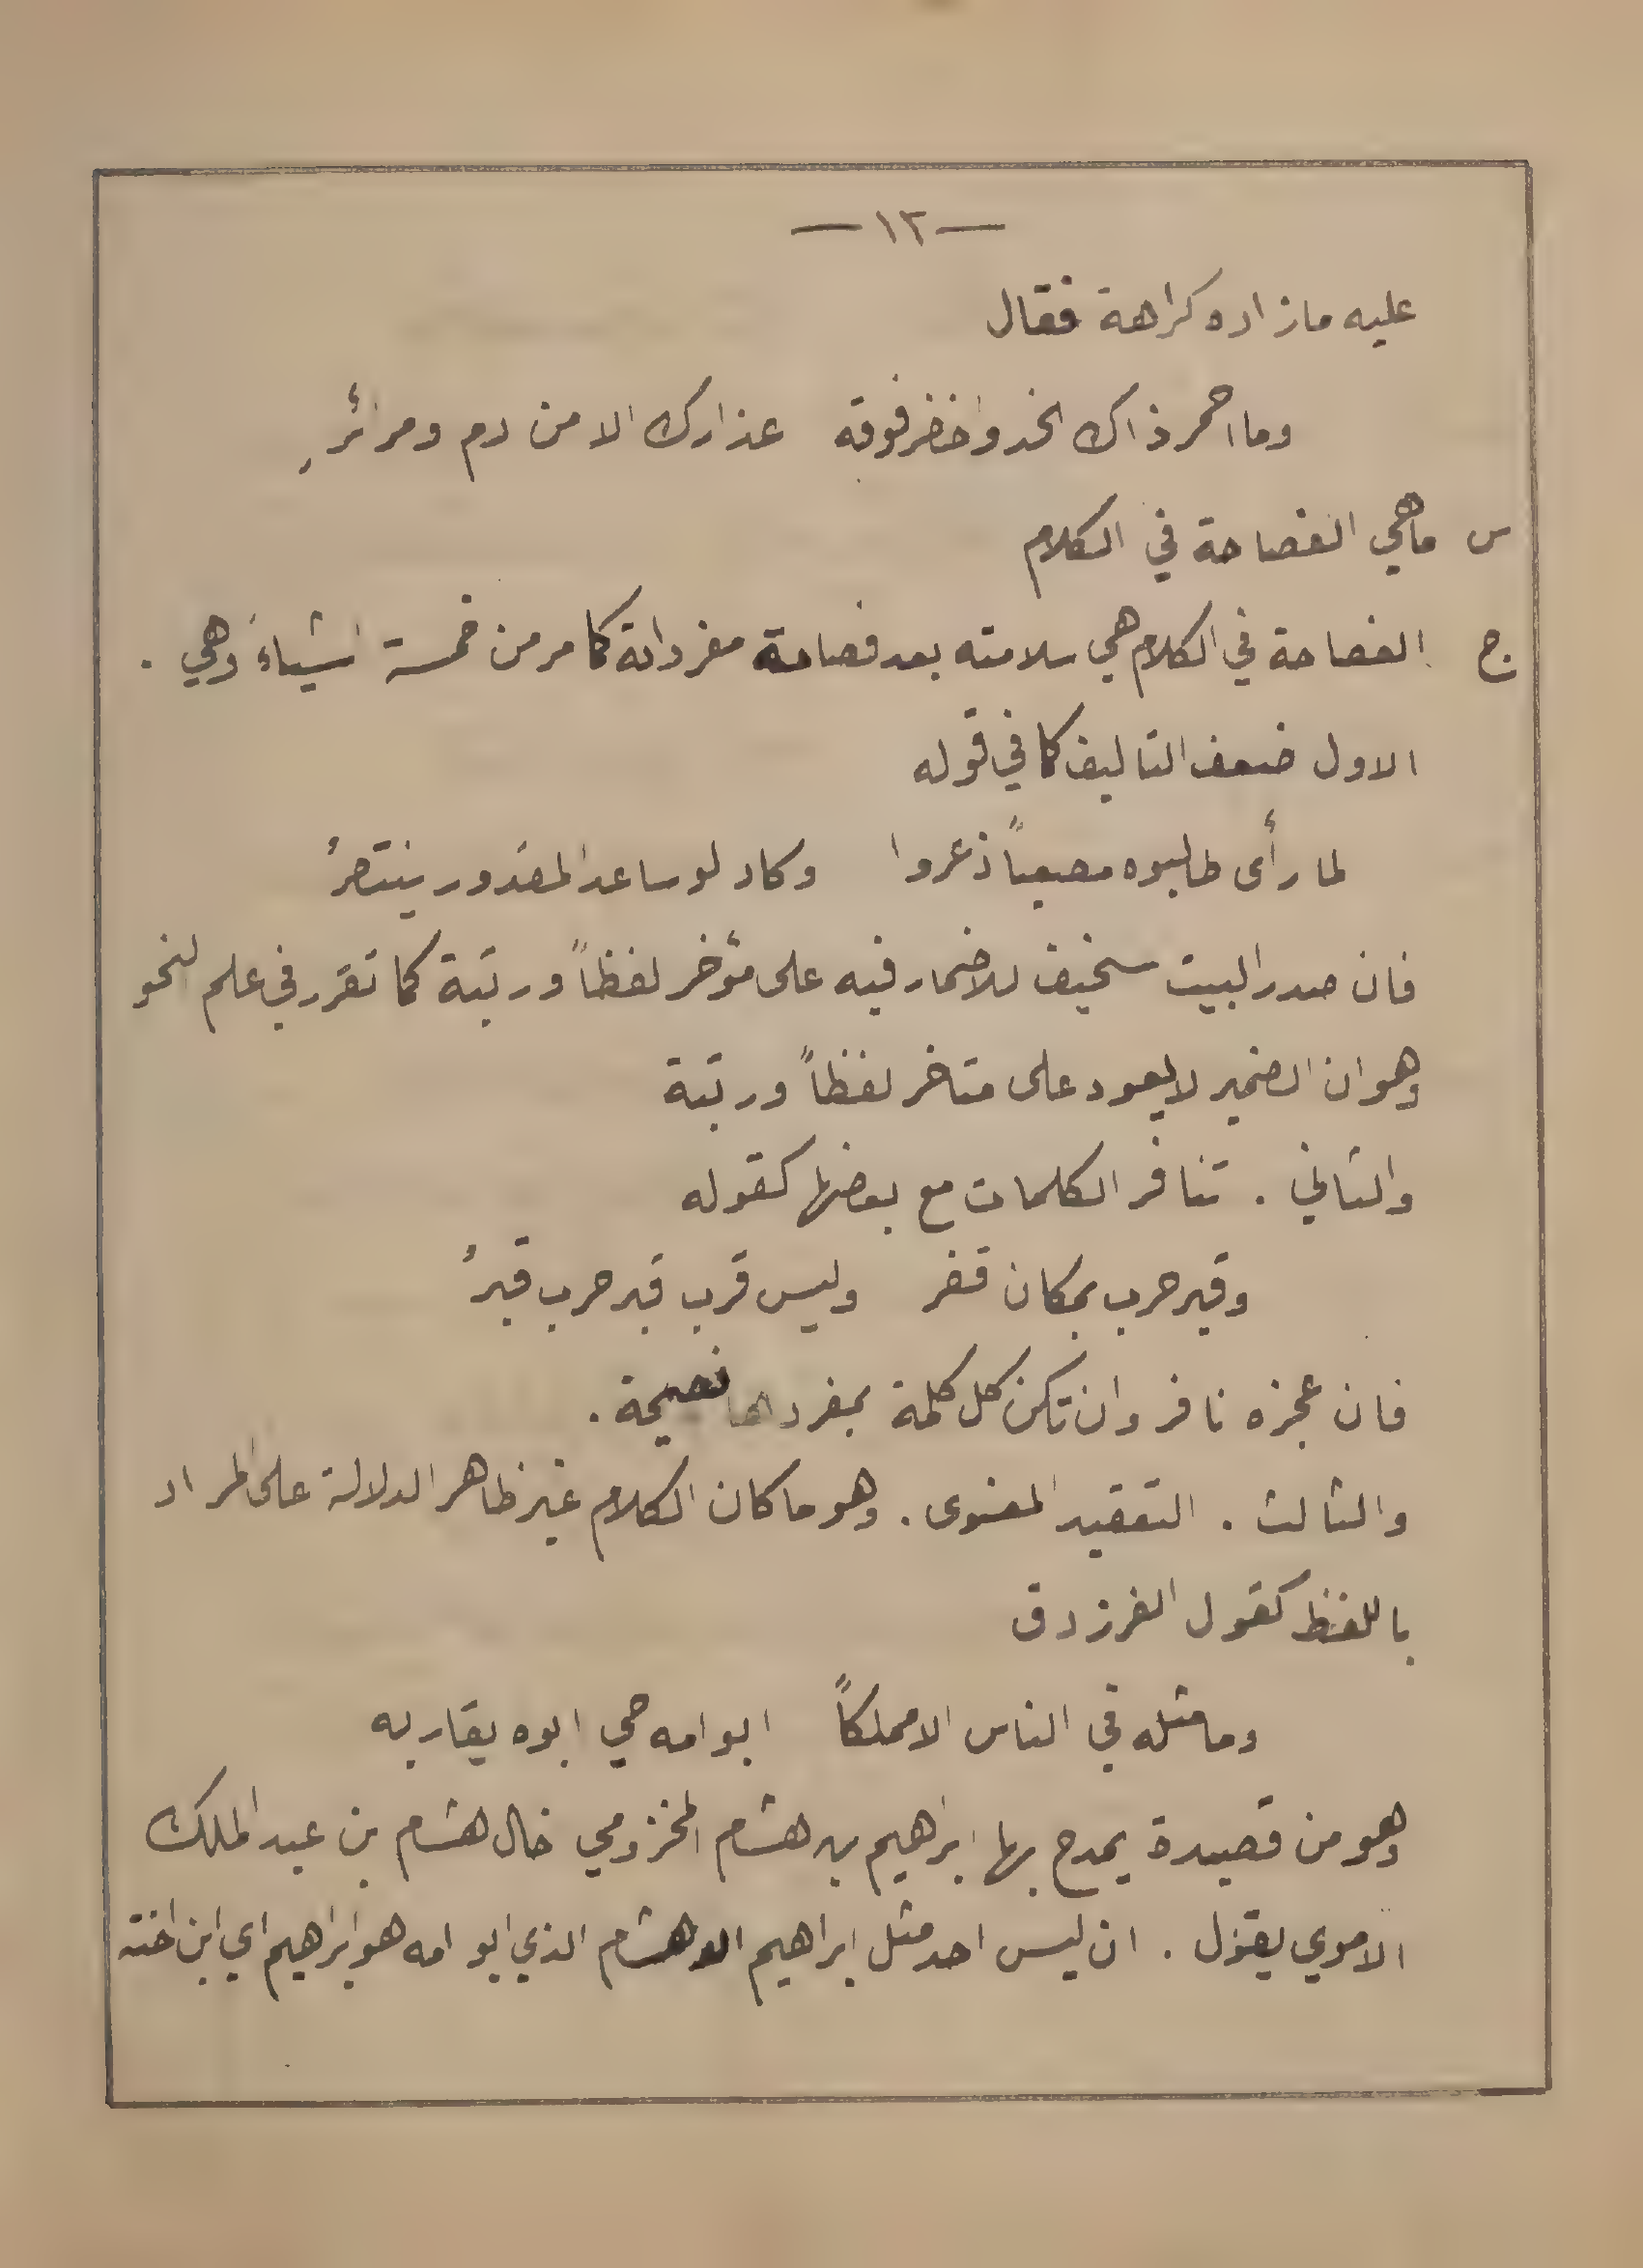 —١٢—
عليه مازاده كراهة فقال
وما احمر ذاك الخد واخضر فوقه عذارك الا من دم ومرائرِ
س ماهي الفصاحة في الكلام
ج الفصاحة في الكلام هي سلامته بعد فصاحة مفرداته كما مر من خمسة اشياءَ وهي .
الاول ضعف التاليف كما في قوله
لما رأى طالبوه مصعباً ذعروا وكاد لو ساعد المقدور ينتصرُ
فان صدر البيت سخيف للاضمار فيه على مؤخر لفظاً ورتبة كما تقرر في علم النحو
وهو ان الضمير لا يعود على متاخر لفظاً ورتبة
والثاني . تنافر الكلمات مع بعضها كقوله
وقبر حرب بمكان قفر وليس قرب قبر حرب قبرُ
فان عجزه نافر وان تكن كل كلمة بمفردها فصيحة .
والثالث . التعقيد المعنوى . وهو ما كان الكلام غير ظاهر الدلالة على المراد
باللفظ كقول الفرزدق
وما مثله في الناس الا مملكاً ابو امه حي ابوه يقاربه
وهو من قصيدة يمدح بها ابراهيم بن هشام المخزومي خال هشام بن عبد الملك
الاموي يقول . ان ليس احد مثل ابراهيم الا هشام الذي ابو امه هو ابراهيم اي ابن اخته